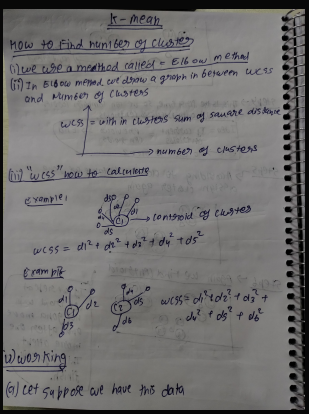 K-mean
How to Find number of cluster
(i) we use a meathod called = Elbow method
(ii) In Elbow method we draw a graph in between WCSS
and Number of clusters
WCSS = with in clusters sum of square distance
number of clusters
(iii) "WCSS" how to calculate
Example:
d1
d5
C1
centroid of cluster
WCSS = d1² + d2² + d3² + d4² + d5²
Example
d1
d2
C1
d3
d4
d5
C2
d6
WCSS = d1² + d2² + d3² +
d4² + d5² + d6²
working
(a) Let suppose we have this data